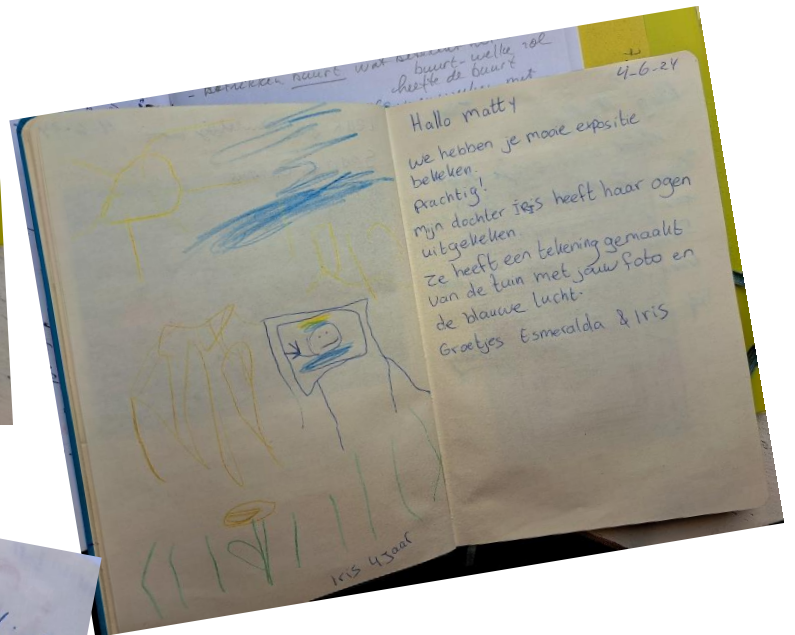 betrekken buurt wat
buurt - welke rol
heeft de buurt
met
4-6-24
Hallo matty
we hebben je mooie expositie
bekeken.
Prachtig!
Mijn dochter iris heeft haar ogen
uitgekeken.
Ze heeft een tekening gemaakt
van de tuin met jouw foto en
de blauwe lucht.
Groetjes Esmeralda & Iris
Iris 4 jaar